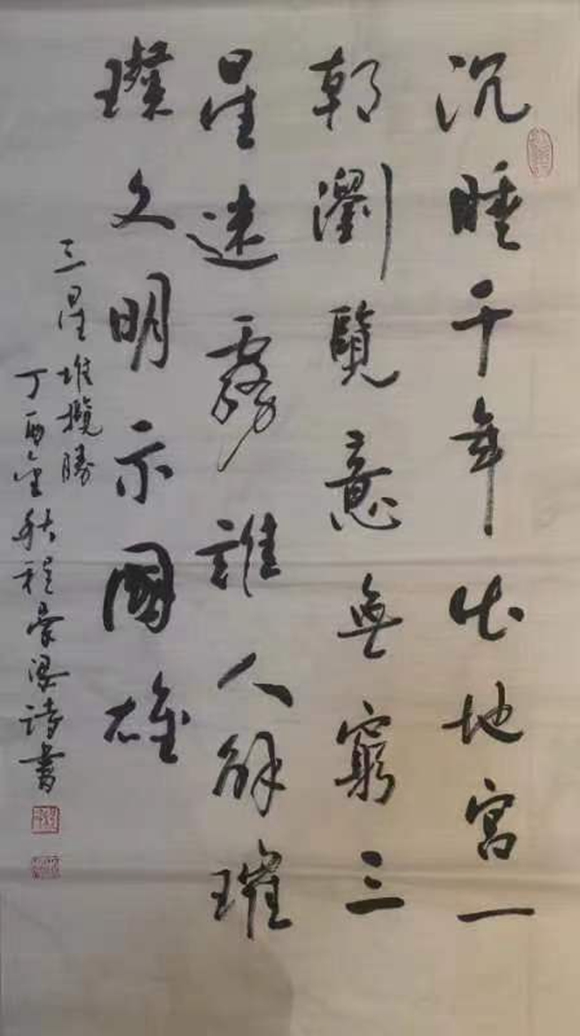 沉睡千年出地宮一
朝瀏覽意無窮三
星迷霧誰人解璀
璨文明示國雄
三星堆攬勝
丁酉金秋程詩書